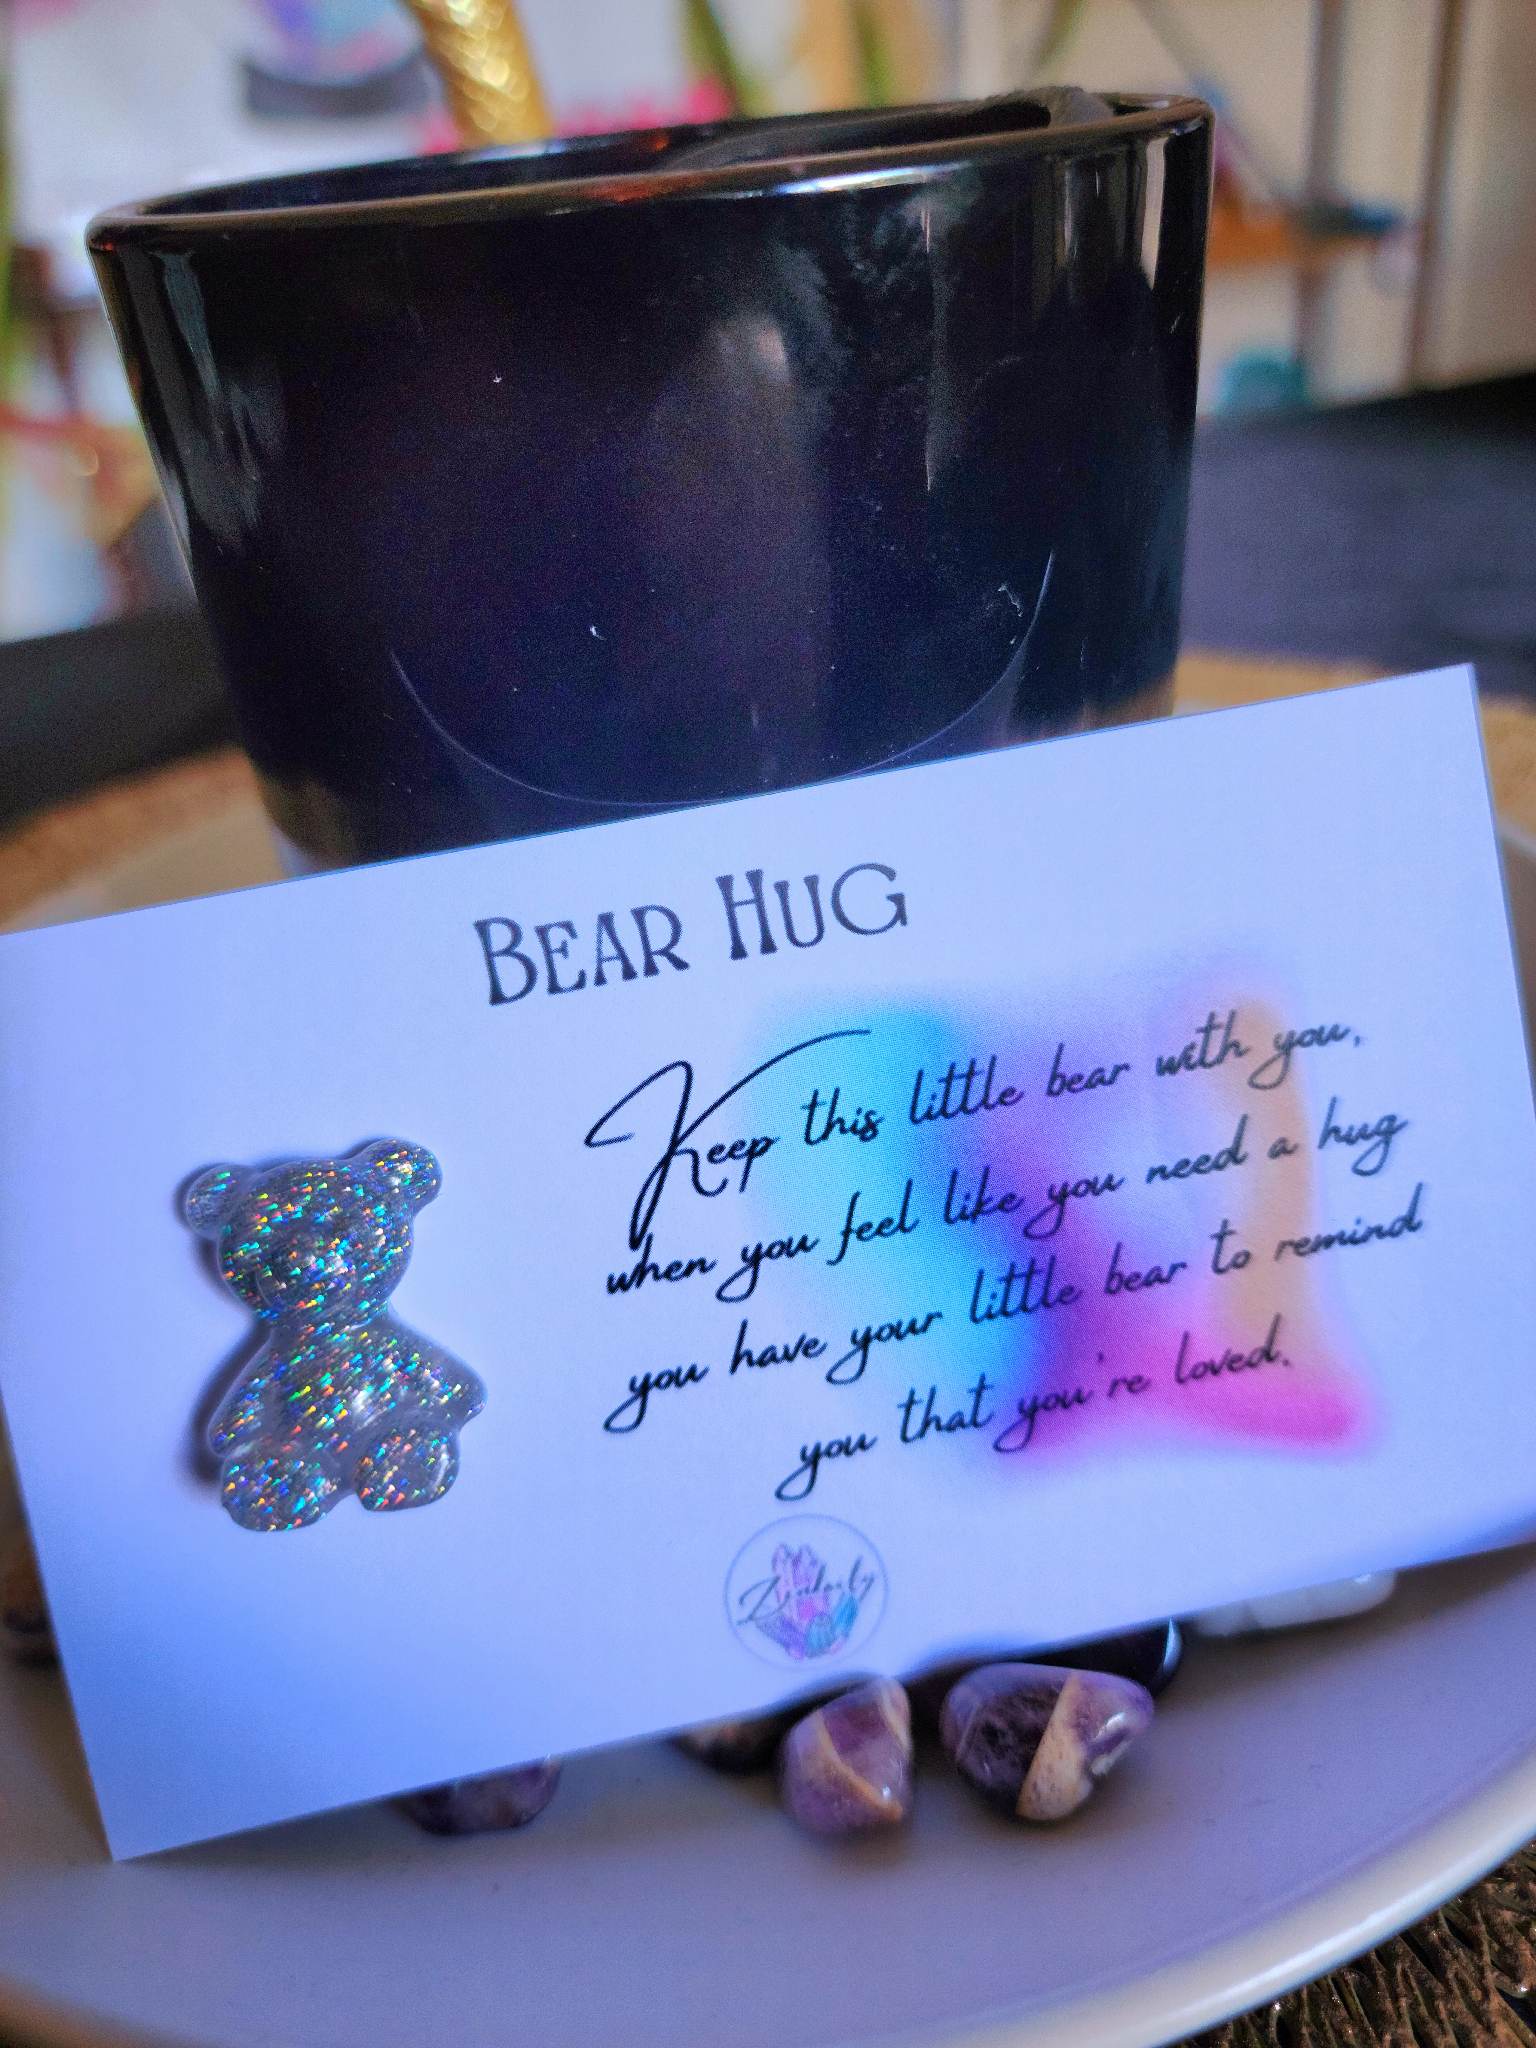 BEAR HUG
Keep this little bear with you,
when you feel like you need a hug
you have your little bear to remind
you that you're loved.